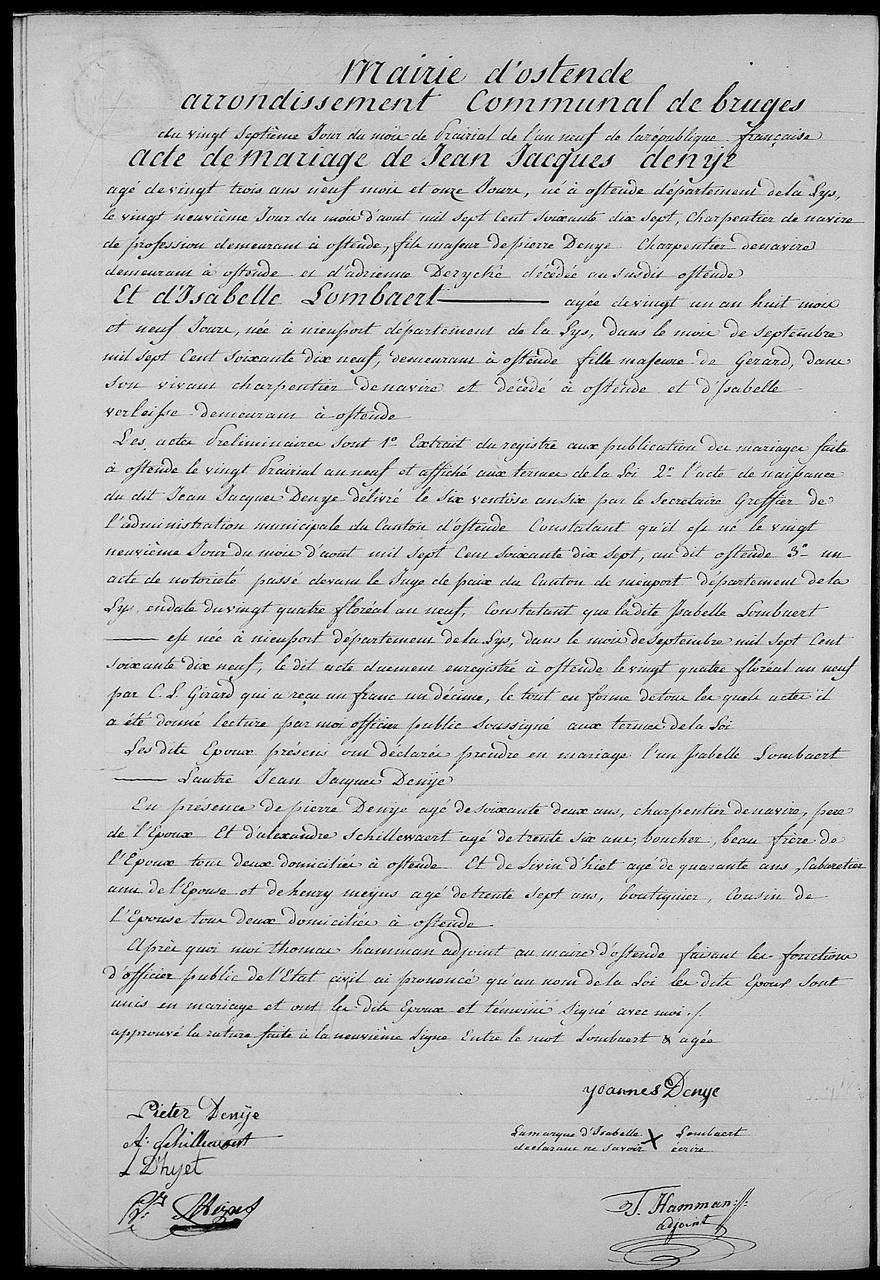 Mairie d'ostende
arrondissement Communal de bruges
du vingt Septième Jour du mois de Prairial de l'an neuf de la république française
acte de mariage de Jean Jacques denije
agé de vingt trois ans neuf mois et onze Jours, né à ostende département de la Lys,
le vingt neuvième Jour du mois d'aout mil Sept Cent Soixante dix Sept, Charpentier de navire
de profession demeurant à ostende, fils majeur de pierre Denye Charpentier de navire
demeurant à ostende et d'adrienne Deryckè décédée au Susdit ostende
Et d'Isabelle Lombaert agée de vingt un an huit mois
et neuf Jours, née à nieuport département de la Lys, dans le mois de Septembre
mil Sept Cent Soixante dix neuf, demeurant à ostende fille majeure de Gerard, dans
Son vivant charpentier de navire et décédé à ostende et d'Isabelle
verleisse demeurant à ostende
Les actes Preliminaires Sont 1o Extrait du registre aux publication des mariages faite
à ostende le vingt Prairial an neuf et affiché aux termes de la Loi 2o l'acte de naissance
du dit Jean Jacques Denye délivré le Six ventôse an Six par le Secrétaire Greffier de
l'administration municipale du Canton d'ostende Constatant qu'il est né le vingt
neuvième Jour du mois d'aout mil Sept Cent Soixante dix Sept, au dit ostende 3o un
acte de notorieté passé devant le Juge de paix du Canton de nieuport département de la
Lys, en date du vingt quatre floréal an neuf, Constatant que la dite Isabelle Lombaert
est née à nieuport département de la Lys, dans le mois de Septembre mil Sept Cent
Soixante dix neuf, le dit acte duement enregistré à ostende le vingt quatre floréal an neuf
par C. L. Girard qui a reçu un franc un décime, le tout en forme de tous les quels actes il
a été donné lecture par moi officier public Soussigné aux termes de la Loi
Les dits Epoux présens ont déclarés prendre en mariage l'un Isabelle Lombaert
L'autre Jean Jacques Denije
En presence de pierre Denije agé de soixante deux ans, charpentier de navire, pere
de l'Epoux Et d'alexandre Schillewaert agé de trente Six ans, boucher, beau frère de
l'Epoux tous deux domiciliés à ostende Et de Livin d'hiet agé de quarante ans, Cabaretier
ami de l'Epouse et de henry meijns agé de trente Sept ans, boutiquier, Cousin de
l'Epouse tous deux domiciliés à ostende
Après quoi moi thomas hamman adjoint au maire d'ostende faisant les fonctions
d'officier public de l'Etat civil ai prononcé qu'au nom de la Loi les dits Epoux Sont
unis en mariage et ont les dits Epoux et témoins Signé avec moi ./.
approuvé la rature faite à la neuvième Ligne Entre le mot Lombaert & agée
yoannes Denye
Pieter Denije
La marque d'Isabelle X Lombaert
A: Schillewaert
declarant ne Savoir écrire
L D'hyet
T. Hamman
adjoint